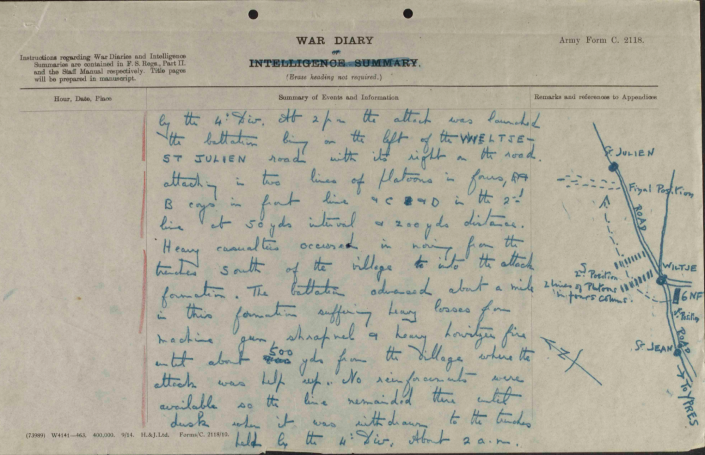 WAR DIARY
or
INTELLIGENCE SUMMARY.
(Erase heading not required.)
Army Form C. 2118.
Instructions regarding War Diaries and Intelligence
Summaries are contained in F. S. Regs., Part II.
and the Staff Manual respectively. Title pages
will be prepared in manuscript.
Hour, Date, Place
Summary of Events and Information
Remarks and references to Appendices
by the 4th Div. At 2 pm the attack was launched
the battalion being on the left of the WIELTJE-
ST JULIEN road with its right on the road.
attacking in two lines of platoons in fours, A &
B coys in front line & C & D in the 2nd
line at 50 yds interval & 200 yds distance.
Heavy casualties occurred in moving from the
trenches south of the village to into the attack
formation. The battalion advanced about a mile
in this formation suffering heavy losses from
machine gun shrapnel & heavy howitzer fire
until about 500 yds from the village where the
attack was help up. No reinforcements were
available so the line remainded there until
dusk when it was withdrawn to the trenches
held by the 4th Div. About 2 a.m.
St JULIEN
Final Position
ROAD
WILTJE
2nd Position
2 lines of Platoons
in fours column
6 NF
1st Position
St JEAN
ROAD
TO YPRES
N
(73989) W4141—463. 400,000. 9/14. H.&J.Ltd. Forms/C. 2118/10.